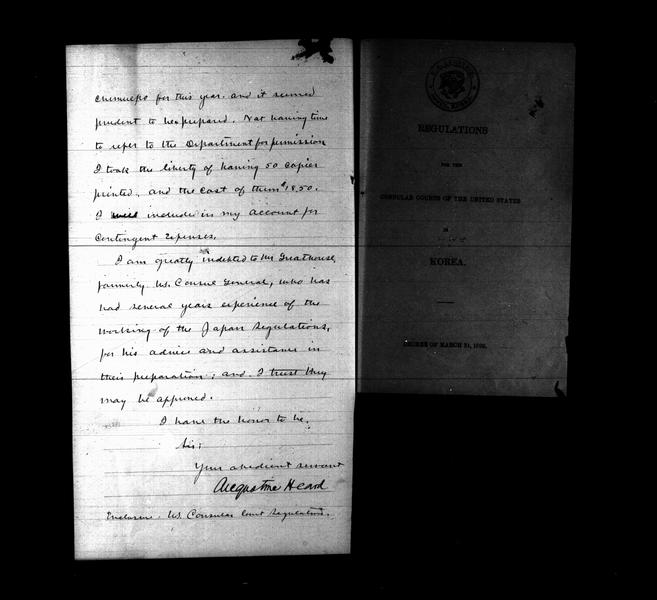 Chemulpo for this year. and it seemed
prudent to be prepared. Not having time
to refer to the Department for permission
I took the liberty of having 50 copies
printed, and the cost of them $18.50.
I will include in my account for
Contingent Expenses.
I am greatly indebted to Mr Greathouse,
formerly U.S. Consul General, who has
had several years experience of the
working of the Japan regulations,
for his advice and assistance in
their preparation; and I trust they
may be approved.
I have the honor to be,
Sir;
Your obedient servant
Augustine Heard
Enclosure. U.S. Consular Court Regulations.
REGULATIONS
FOR THE
CONSULAR COURTS OF THE UNITED STATES
IN
KOREA.
DECREE OF MARCH 31, 1892.